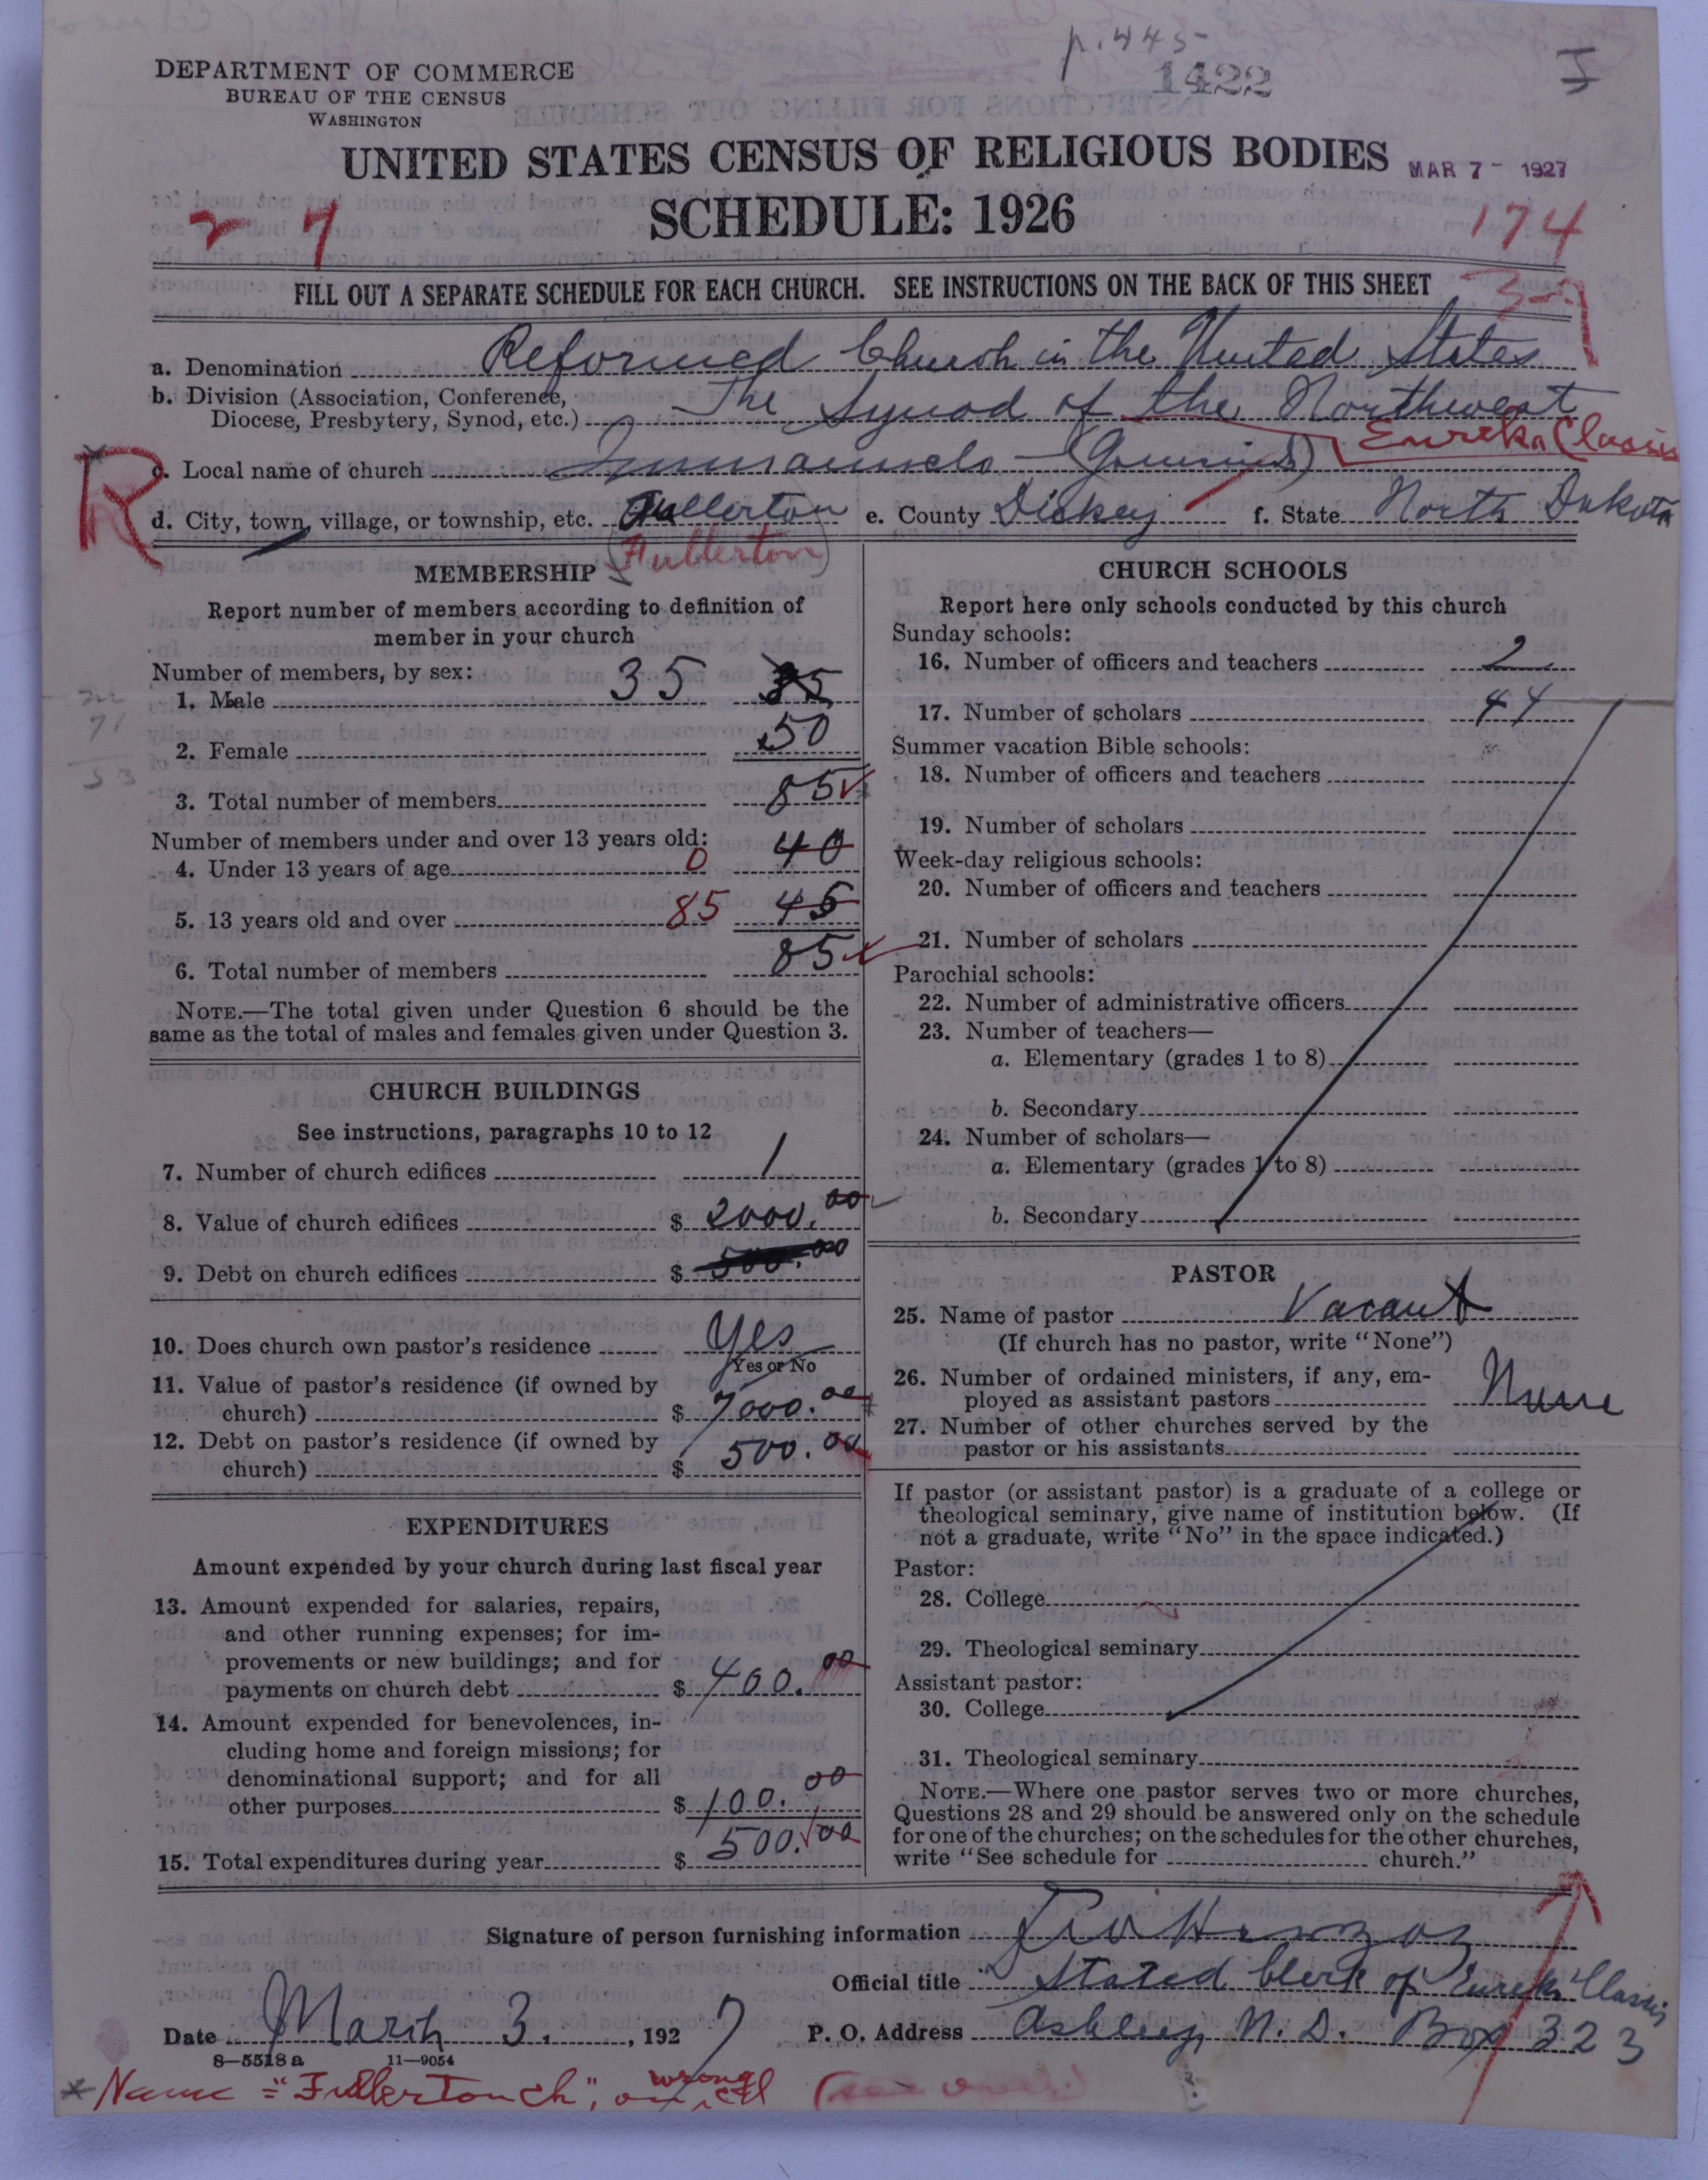 p. 445
1422
DEPARTMENT OF COMMERCE
BUREAU OF THE CENSUS
WASHINGTON
UNITED STATES CENSUS OF RELIGIOUS BODIES
MAR 7 - 1927
SCHEDULE: 1926
27
174
FILL OUT A SEPARATE SCHEDULE FOR EACH CHURCH. SEE INSTRUCTIONS ON THE BACK OF THIS SHEET
a. Denomination Reformed Church in the United States
b. Division (Association, Conference,
Diocese, Presbytery, Synod, etc.) The Synod of the Northwest
Eureka Classis
R
c. Local name of church
d. City, town, village, or township, etc. Fullerton e. County Dickey f. State North Dakota
(Fullerton)
MEMBERSHIP
Report number of members according to definition of
member in your church
Number of members, by sex:
1. Male 35 35
2. Female 50
3. Total number of members 85
Number of members under and over 13 years old:
4. Under 13 years of age 0 40
5. 13 years old and over 85 45
6. Total number of members 85
NOTE.—The total given under Question 6 should be the
same as the total of males and females given under Question 3.
CHURCH BUILDINGS
See instructions, paragraphs 10 to 12
7. Number of church edifices 1
8. Value of church edifices $ 2000.00
9. Debt on church edifices $ 500.00
10. Does church own pastor's residence Yes
Yes or No
11. Value of pastor's residence (if owned by
church) $ 7000.00
12. Debt on pastor's residence (if owned by
church) $ 500.00
EXPENDITURES
Amount expended by your church during last fiscal year
13. Amount expended for salaries, repairs,
and other running expenses; for im-
provements or new buildings; and for
payments on church debt $ 400.00
14. Amount expended for benevolences, in-
cluding home and foreign missions; for
denominational support; and for all
other purposes $ 100.00
15. Total expenditures during year $ 500.00
CHURCH SCHOOLS
Report here only schools conducted by this church
Sunday schools:
16. Number of officers and teachers 2
17. Number of scholars 44
Summer vacation Bible schools:
18. Number of officers and teachers
19. Number of scholars
Week-day religious schools:
20. Number of officers and teachers
21. Number of scholars
Parochial schools:
22. Number of administrative officers
23. Number of teachers—
a. Elementary (grades 1 to 8)
b. Secondary
24. Number of scholars—
a. Elementary (grades 1 to 8)
b. Secondary
PASTOR
25. Name of pastor Vacant
(If church has no pastor, write "None")
26. Number of ordained ministers, if any, em-
ployed as assistant pastors None
27. Number of other churches served by the
pastor or his assistants
If pastor (or assistant pastor) is a graduate of a college or
theological seminary, give name of institution below. (If
not a graduate, write "No" in the space indicated.)
Pastor:
28. College
29. Theological seminary
Assistant pastor:
30. College
31. Theological seminary
NOTE.—Where one pastor serves two or more churches,
Questions 28 and 29 should be answered only on the schedule
for one of the churches; on the schedules for the other churches,
write "See schedule for church."
Signature of person furnishing information
Official title Stated Clerk of Eureka Classis
Date March 3, 1927 P. O. Address Ashley, N. D. Box 323
8—5518a 11—9054
* Name = "Fullerton ch", on wrong
(see over)